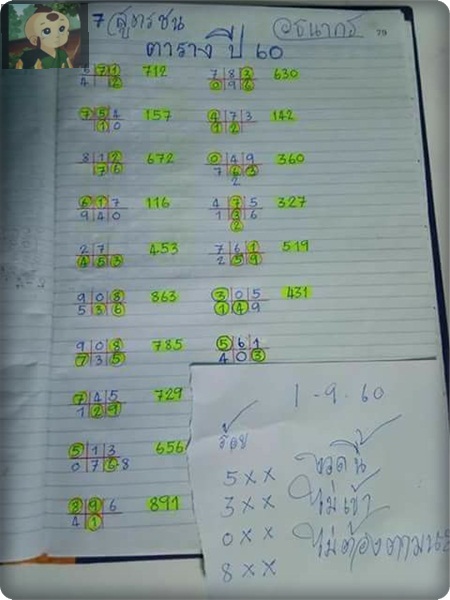 7 สูตรชน
อธนากร
79
ตาราง ปี 60
5 7 1 712 7 8 3 630
4 2 0 9 6
7 5 4 157 4 7 3 142
1 0 1 2
8 1 2 672 0 4 9 360
7 6 7 6 3
2
6 1 7 116 4 7 5 327
9 4 0 1 3 6
2
2 7 453 7 6 1 519
4 5 3 2 5 9
9 0 8 863 3 0 5 431
5 3 6 1 4 9
9 0 8 785 5 6 1
7 3 5 4 0 3
7 4 5 729
1 2 9
5 1 3 656
0 7 6 8
8 9 6 891
4 1
1 - 9 - 60
ร้อย
5 x x งวดนี้
3 x x ไม่เข้า
0 x x ไม่ต้องตามนะ
8 x x